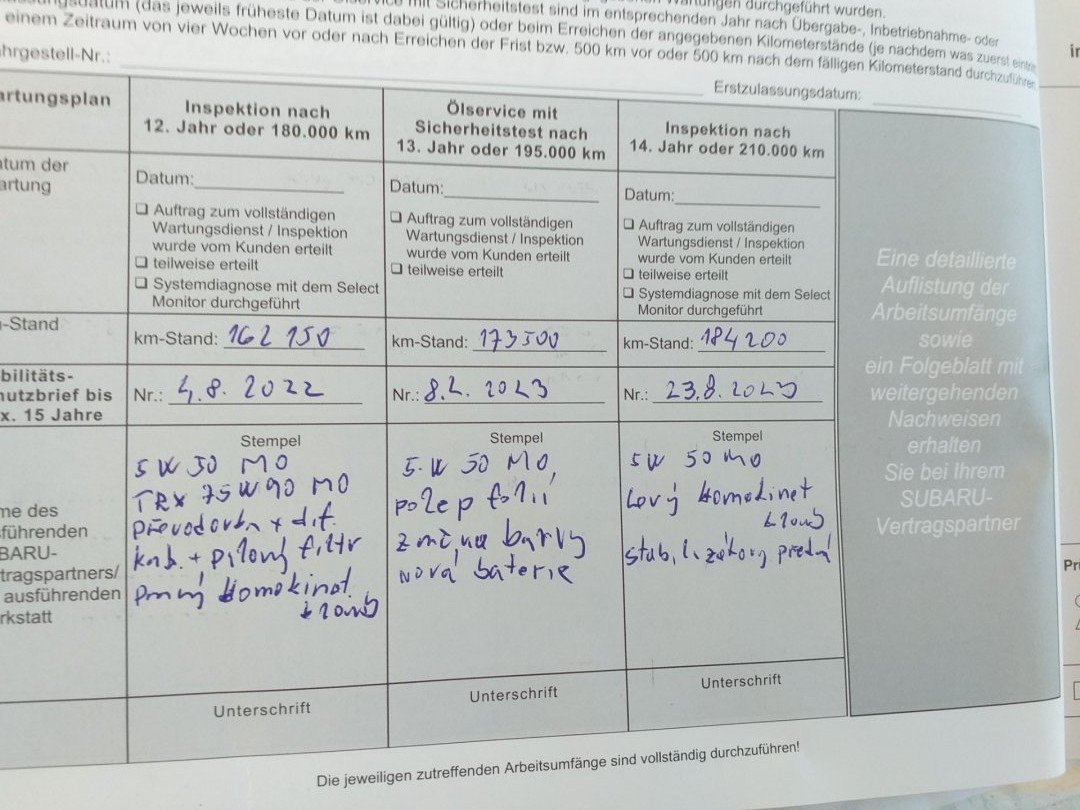 (das jeweils früheste Datum ist dabei gültig) oder beim Erreichen der angegebenen Kilometerstände (je nachdem was zuerst
einem Zeitraum von vier Wochen vor oder nach Erreichen der Frist bzw. 500 km vor oder 500 km nach dem fälligen Kilometerstand durchzuführen
Sicherheitstest sind im entsprechenden Jahr nach Übergabe-, Inbetriebnahme- oder
durchgeführt wurden.
ahrgestell-Nr.:
Erstzulassungsdatum:
artungsplan
Inspektion nach
12. Jahr oder 180.000 km
Ölservice mit
Sicherheitstest nach
13. Jahr oder 195.000 km
Inspektion nach
14. Jahr oder 210.000 km
tum der
artung
Datum:
❑ Auftrag zum vollständigen
Wartungsdienst / Inspektion
wurde vom Kunden erteilt
❑ teilweise erteilt
❑ Systemdiagnose mit dem Select
Monitor durchgeführt
Datum:
❑ Auftrag zum vollständigen
Wartungsdienst / Inspektion
wurde vom Kunden erteilt
❑ teilweise erteilt
Datum:
❑ Auftrag zum vollständigen
Wartungsdienst / Inspektion
wurde vom Kunden erteilt
❑ teilweise erteilt
❑ Systemdiagnose mit dem Select
Monitor durchgeführt
-Stand
km-Stand: 162 150
km-Stand: 173500
km-Stand: 184200
bilitäts-
hutzbrief bis
x. 15 Jahre
Nr.: 4.8. 2022
Nr.: 8.2. 2023
Nr.: 23.8. 2023
me des
sführenden
BARU-
tragspartners/
ausführenden
rkstatt
Stempel
5W 50 MO
TRX 75W90 MO
převodovka + dif.
kab. + pylový filtr
Pravý Homokinet.
Stempel
5W 50 MO,
polep folií
změna barvy
nová baterie
Stempel
5W 50 MO
Levý Homokinet
stab. přední
Unterschrift
Unterschrift
Unterschrift
Eine detaillierte
Auflistung der
Arbeitsumfänge
sowie
ein Folgeblatt mit
weitergehenden
Nachweisen
erhalten
Sie bei Ihrem
SUBARU-
Vertragspartner
Die jeweiligen zutreffenden Arbeitsumfänge sind vollständig durchzuführen!